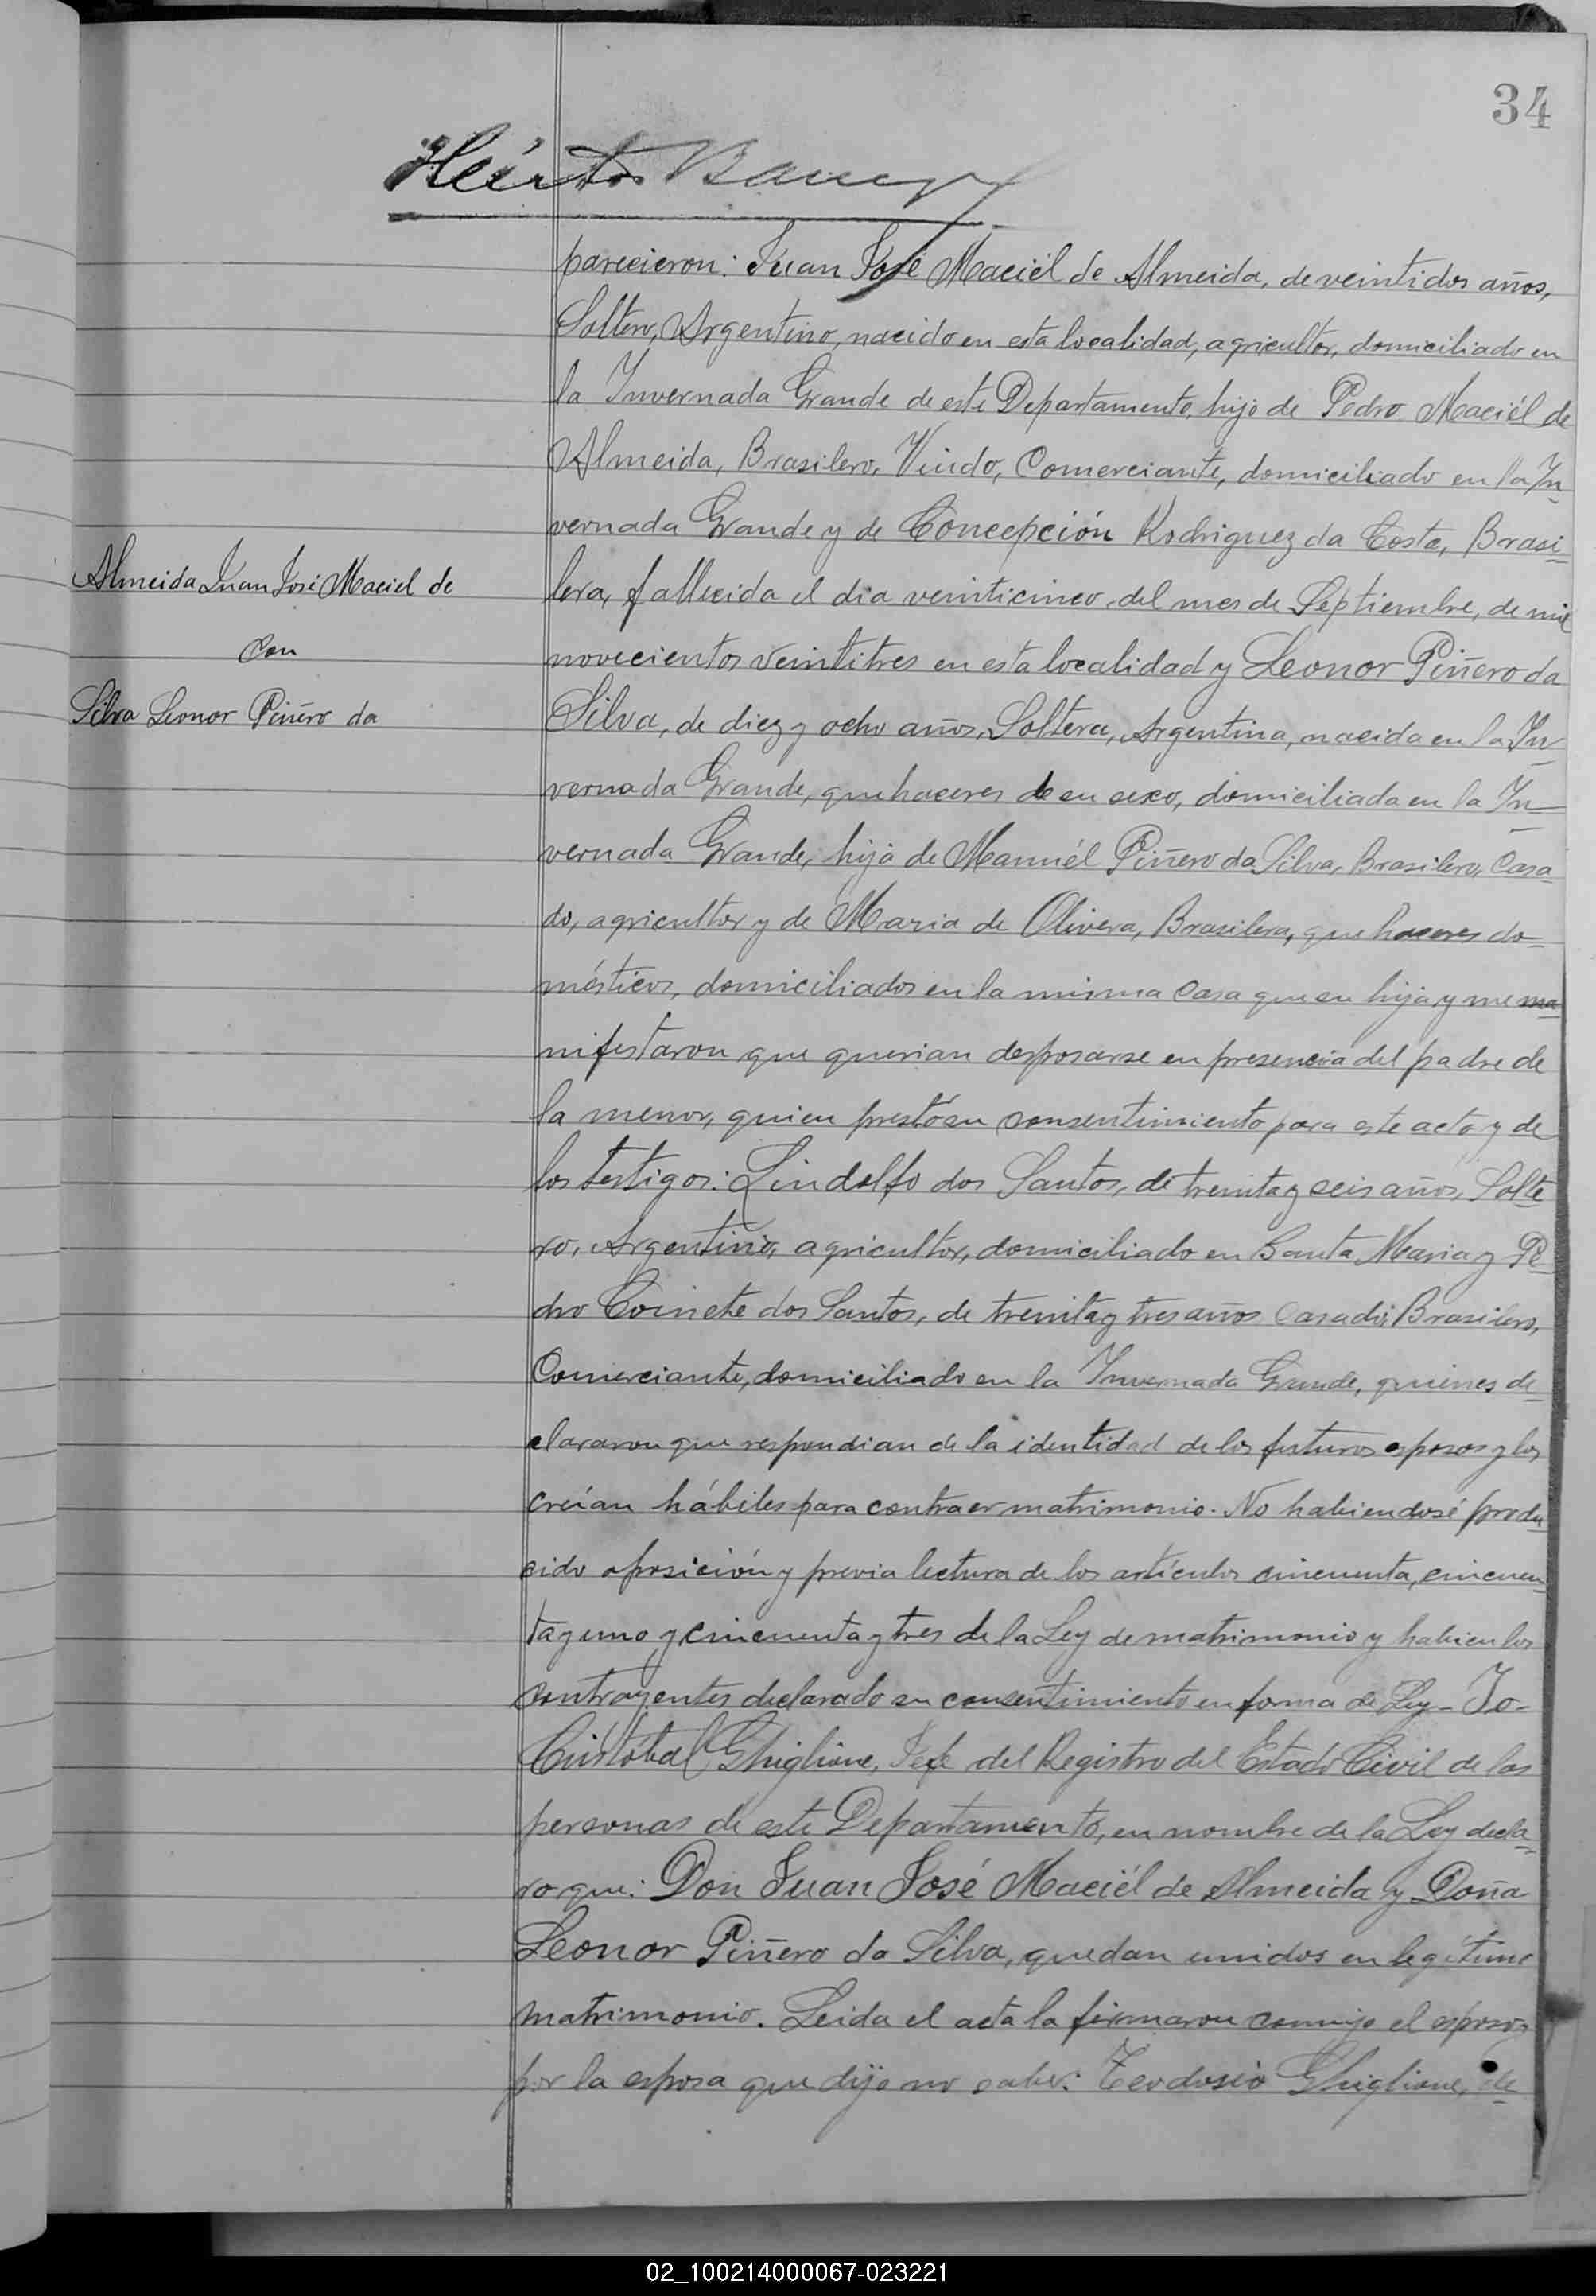 34
parecieron: Juan José Maciél de Almeida, de veintidos años,
Soltero, Argentino, nacido en esta localidad, agricultor, domiciliado en
la Invernada Grande de este Departamento, hijo de Pedro Maciél de
Almeida, Brasilero, Viudo, Comerciante, domiciliado en la In
vernada Grande y de Concepción Rodriguez da Costa, Brasi-
lera, fallecida el dia veinticinco del mes de Septiembre, de mil
Almeida Juan José Maciel de
con
Silva Leonor Piñero da
novecientos veintitres en esta localidad y Leonor Piñero da
Silva, de diez y ocho años, Soltera, Argentina, nacida en la In
vernada Grande, quehaceres de su sexo, domiciliada en la In
vernada Grande, hija de Manuél Piñero da Silva, Brasilero, Casa
do, agricultor y de Maria de Olivera, Brasilera, que haceres do-
mésticos, domiciliados en la misma casa que su hija y me ma
nifestaron que querian desposarse en presencia del padre de
la menor, quien prestó su consentimiento para este acto y de
los testigos: Lindolfo dos Santos, de treinta y seis años, Solte
ro, Argentino, agricultor, domiciliado en Santa Maria y Pe
dro dos Santos, de treinta y tres años Casado, Brasilero,
Comerciante, domiciliado en la Invernada Grande, quienes de-
clararon que respondian de la identidad de los futuros esposos y los
creían hábiles para contraer matrimonio. No habiendosé produ
cido oposición y previa lectura de los artículos cincuenta, cincuen
ta y uno y cincuenta y tres de la Ley de matrimonio y habien los
contrayentes declarado su consentimiento en forma de Ley - Yo -
Cristóbal Ghiglione, Jefe del Registro del Estado Civil de las
personas de este Departamento, en nombre de la Ley decla
ro que: Don Juan José Maciél de Almeida y Doña
Leonor Piñero da Silva, quedan unidos en legítimo
matrimonio. Leida el acta la firmaron conmigo el esposo y
por la esposa que dijo no saber: Teodosio Ghiglione, de
02_100214000067-023221